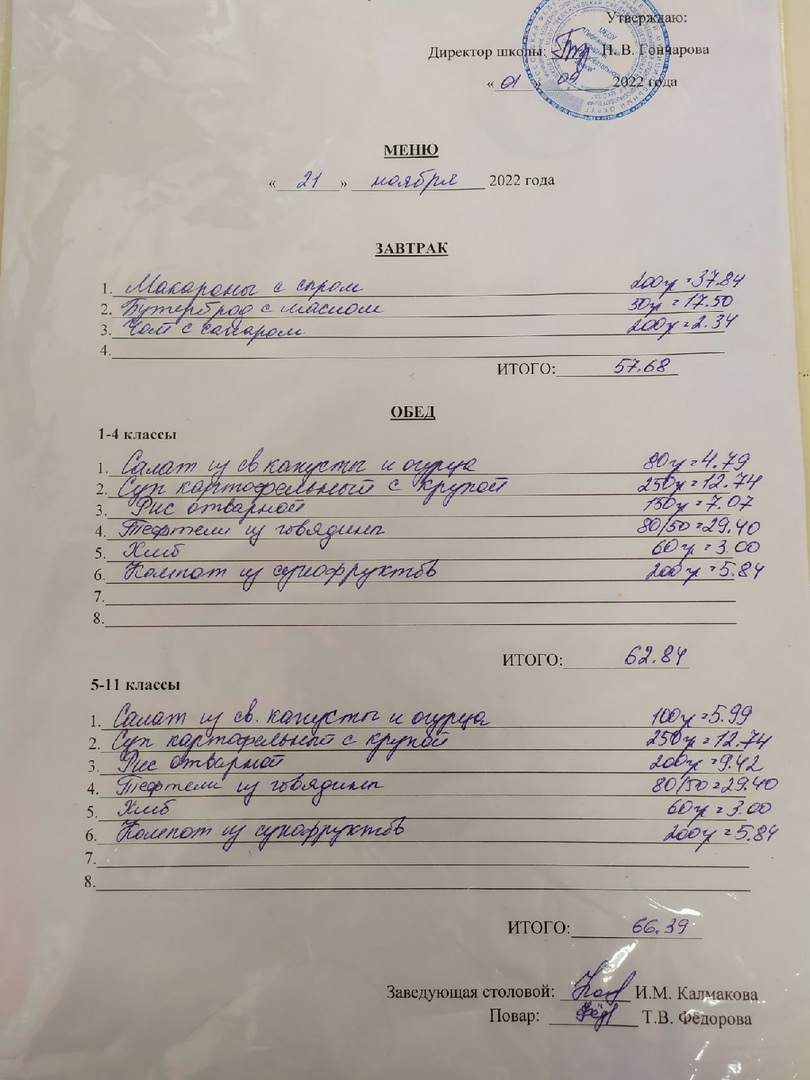 Утверждаю:
Директор школы: Н. В. Гончарова
« 01 » 09 2022 года
МЕНЮ
« 21 » ноября 2022 года
ЗАВТРАК
1. Макароны с сыром 200г=37.84
2. Бутерброд с маслом 50г=17.50
3. Чай с сахаром 200г=2.34
4.
ИТОГО: 57.68
ОБЕД
1-4 классы
1. Салат из св капусты и огурца 80г=4.79
2. Суп картофельный с крупой 250г=12.74
3. Рис отварной 150г=7.07
4. Тефтели из говядины 80/50=29.40
5. Хлеб 60г=3.00
6. Компот из сухофруктов 200г=5.84
7.
8.
ИТОГО: 62.84
5-11 классы
1. Салат из св. капусты и огурца 100г=5.99
2. Суп картофельный с крупой 250г=12.74
3. Рис отварной 200г=9.42
4. Тефтели из говядины 80/50=29.40
5. Хлеб 60г=3.00
6. Компот из сухофруктов 200г=5.84
7.
8.
ИТОГО: 66.39
Заведующая столовой: И.М. Калмакова
Повар: Т.В. Федорова